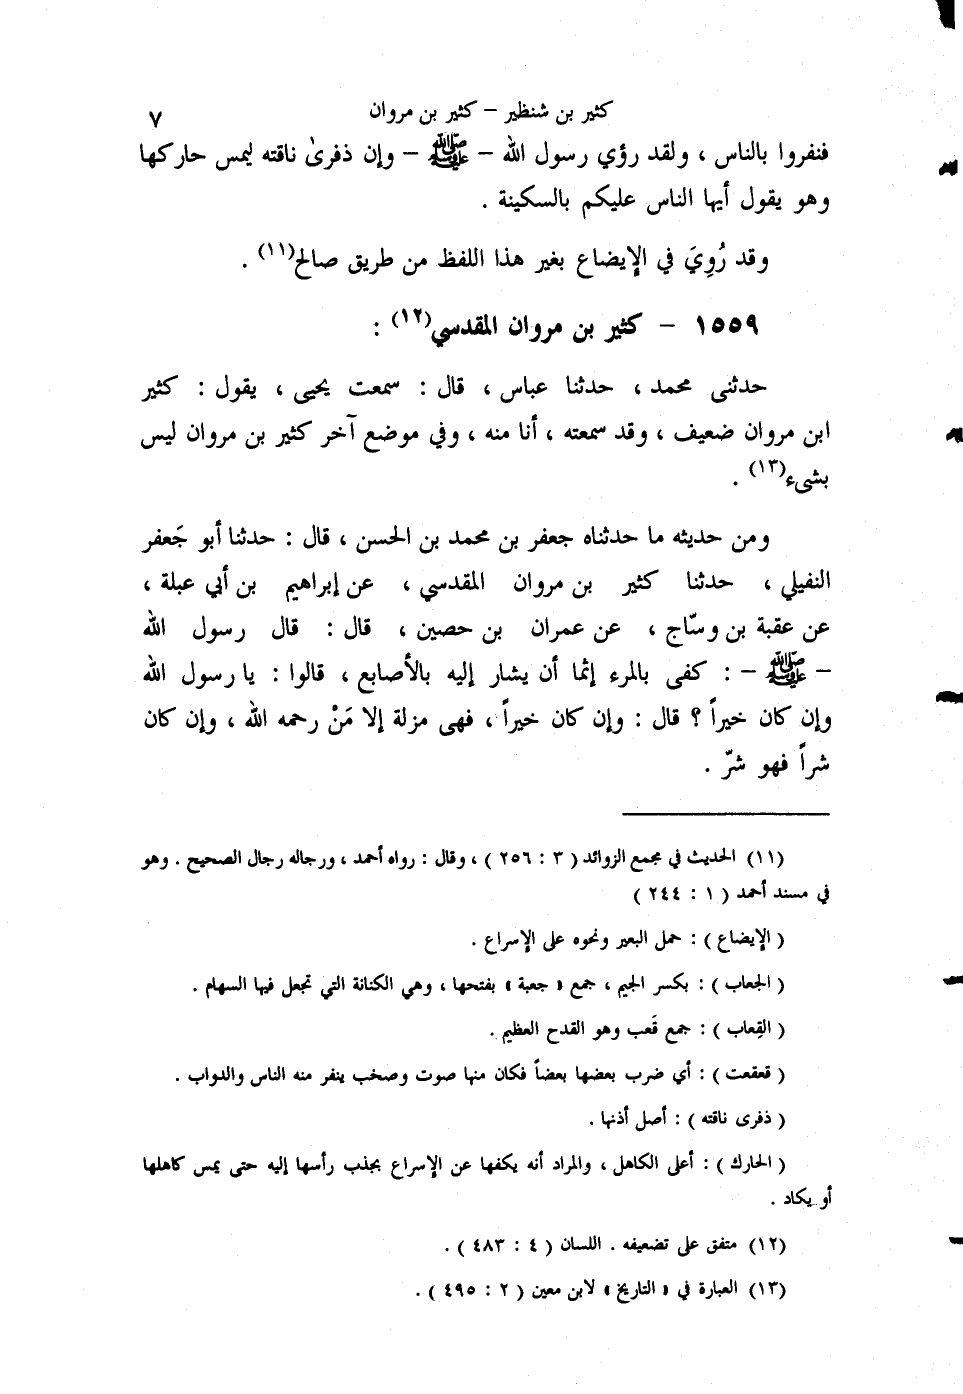 كثير بن شنظير – كثير بن مروان ٧
فنفروا بالناس ، ولقد رؤي رسول الله – ﷺ – وإن ذفرىٰ ناقته ليمس حاركها
وهو يقول أيها الناس عليكم بالسكينة .
وقد رُوِيَ في الإيضاع بغير هذا اللفظ من طريق صالح(١١) .
١٥٥٩ – كثير بن مروان المقدسي(١٢) :
حدثنى محمد ، حدثنا عباس ، قال : سمعت يحيى ، يقول : كثير
ابن مروان ضعيف ، وقد سمعته ، أنا منه ، وفي موضع آخر كثير بن مروان ليس
بشىء(١٣) .
ومن حديثه ما حدثناه جعفر بن محمد بن الحسن ، قال : حدثنا أبو جَعفر
النفيلي ، حدثنا كثير بن مروان المقدسي ، عن إبراهيم بن أبي عبلة ،
عن عقبة بن وسّاج ، عن عمران بن حصين ، قال : قال رسول الله
– ﷺ – : كفى بالمرء إثما أن يشار إليه بالأصابع ، قالوا : يا رسول الله
وإن كان خيراً ؟ قال : وإن كان خيراً ، فهى مزلة إلا مَنْ رحمه الله ، وإن كان
شراً فهو شرّ .
(١١) الحديث في مجمع الزوائد ( ٣ : ٢٥٦ ) ، وقال : رواه أحمد ، ورجاله رجال الصحيح . وهو
في مسند أحمد ( ١ : ٢٤٤ )
( الإيضاع ) : حمل البعير ونحوه على الإسراع .
( الجعاب ) : بكسر الجيم ، جمع « جعبة » بفتحها ، وهي الكنانة التي تجعل فيها السهام .
( القِعاب ) : جمع قَعب وهو القدح العظيم .
( قعقعت ) : أي ضرب بعضها بعضاً فكان منها صوت وصخب ينفر منه الناس والدواب .
( ذفرى ناقته ) : أصل أذنها .
( الحارك ) : أعلى الكاهل ، والمراد أنه يكفها عن الإسراع بجذب رأسها إليه حتى يمس كاهلها
أو يكاد .
(١٢) متفق على تضعيفه . اللسان ( ٤ : ٤٨٣ ) .
(١٣) العبارة في « التاريخ » لابن معين ( ٢ : ٤٩٥ ) .